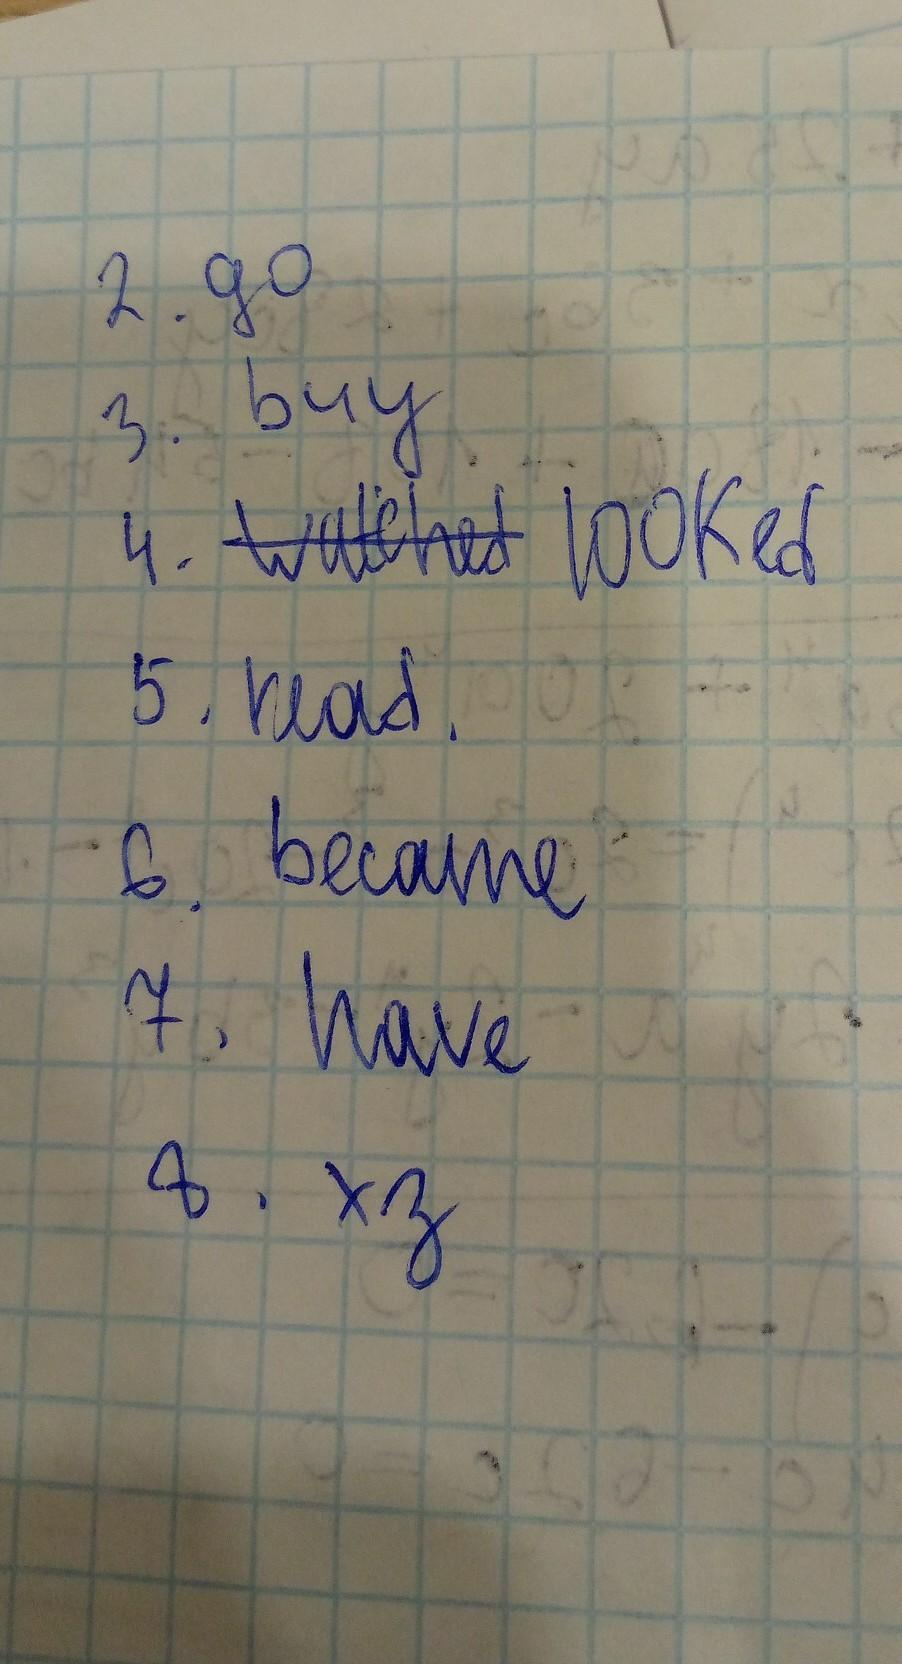 2. go
3. buy
4. watched looked
5. read.
6. became
7. have
8. xz